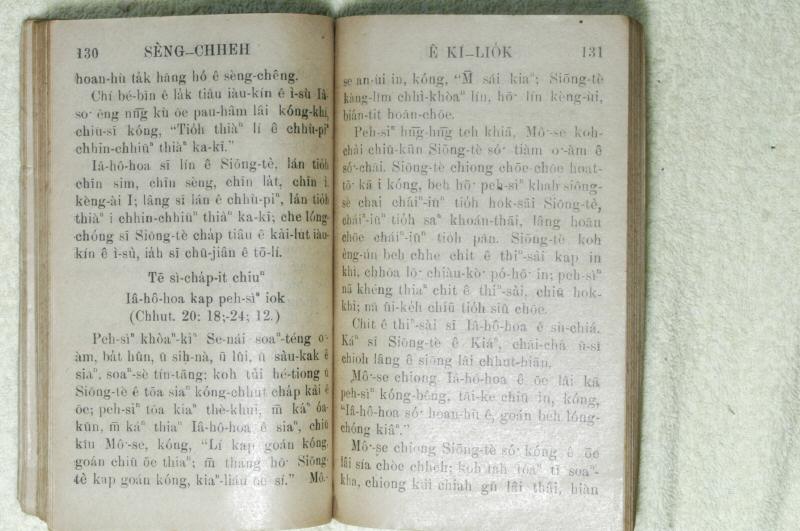 130 SÈNG-CHHEH
hoan-hù ta̍k hāng hó ê sèng-chêng.
Chí bé-bīn ê la̍k tiâu iàu-kín ê ì-sù Iâ-
so͘ èng nn̄g kù ōe pau-hâm lâi kóng-khí,
chiū-sī kóng, “Tio̍h thiàⁿ lí ê chhù-piⁿ
chhin-chhiūⁿ thiàⁿ ka-kī.”
Iâ-hô-hoa sī lín ê Siōng-tè, lán tio̍h
chīn sim, chīn sèng, chīn la̍t, chīn ì,
kèng-ài I; lâng sī lán ê chhù-piⁿ, lán tio̍h
thiàⁿ i chhin-chhiūⁿ thiàⁿ ka-kī; che lóng-
chóng sī Siōng-tè cha̍p tiâu ê kài-lu̍t iàu-
kín ê ì-sù, ia̍h sī chū-jiân ê tō-lí.
Tē sì-cha̍p-it chiuⁿ
Iâ-hô-hoa kap peh-sìⁿ iok
(Chhut. 20: 18;-24; 12.)
Peh-sìⁿ khòaⁿ-kìⁿ Se-nái soaⁿ-téng o͘-
àm, ba̍t hûn, ū sih-nà, ū lûi, ū sàu-kak ê
siaⁿ, soaⁿ-sè tín-tāng; koh tùi hé-tiong ū
Siōng-tè ê tōa siaⁿ kóng-chhut cha̍p kài ê
ōe; peh-sìⁿ tōa kiaⁿ thè-khui, m̄ káⁿ óa-
kūn, m̄ káⁿ thiaⁿ Iâ-hô-hoa ê siaⁿ, chiū
kiû Mô͘-se, kóng, “Lí kap goán kóng,
goán chiū ōe thiaⁿ; m̄ thang hō͘ Siōng-
tè kap goán kóng, kiaⁿ-liáu ōe sí.” Mô͘-
Ê KÍ-LIO̍K 131
se an-ùi in, kóng, “M̄ sái kiaⁿ; Siōng-tè
kàng-lîm chhì-khòaⁿ lín, hō͘ lín kèng-ùi,
bián-tit hoān-chōe.
Peh-sìⁿ hn̄g-hn̄g teh khiā, Mô͘-se koh-
chài chiū-kūn Siōng-tè só͘ tiàm o͘-àm ê
só͘-chāi. Siōng-tè chiong chōe-chōe hoat-
tō͘ kā i kóng, beh hō͘ peh-sìⁿ khah siông-
sè chai cháiⁿ-iūⁿ tio̍h ho̍k-sāi Siōng-tè,
cháiⁿ-iūⁿ tio̍h saⁿ khoán-thāi, lâng hoān
chōe cháiⁿ-iūⁿ tio̍h pān. Siōng-tè koh
èng-ún beh chhe chi̍t ê thiⁿ-sài kap in
khì, chhōa lō͘ chiàu-kò͘ pó-hō͘ in; peh-sìⁿ
nā khéng thiaⁿ chit ê thiⁿ-sài, chiū hok-
khì; nā ûi-ke̍h chiū tio̍h siū chōe.
Chit ê thiⁿ-sài sī Iâ-hô-hoa ê sù-chiá.
Káⁿ sī Siōng-tè ê Kiáⁿ, chái-chá ū-sî
chioh lâng ê siōng lâi chhut-hiān.
Mô͘-se chiong Iâ-hô-hoa ê ōe lâi kā
peh-sìⁿ kóng-bêng, tāi-ke chiū ìn, kóng,
“Iâ-hô-hoa só͘ hoan-hù ê, goán beh lóng-
chóng kiâⁿ.”
Mô͘-se chiong Siōng-tè só͘ kóng ê ōe
lâi siá chòe chheh; koh tòa tī soaⁿ-
kha, chiong kúi chiah gû lâi thâi, hiàn